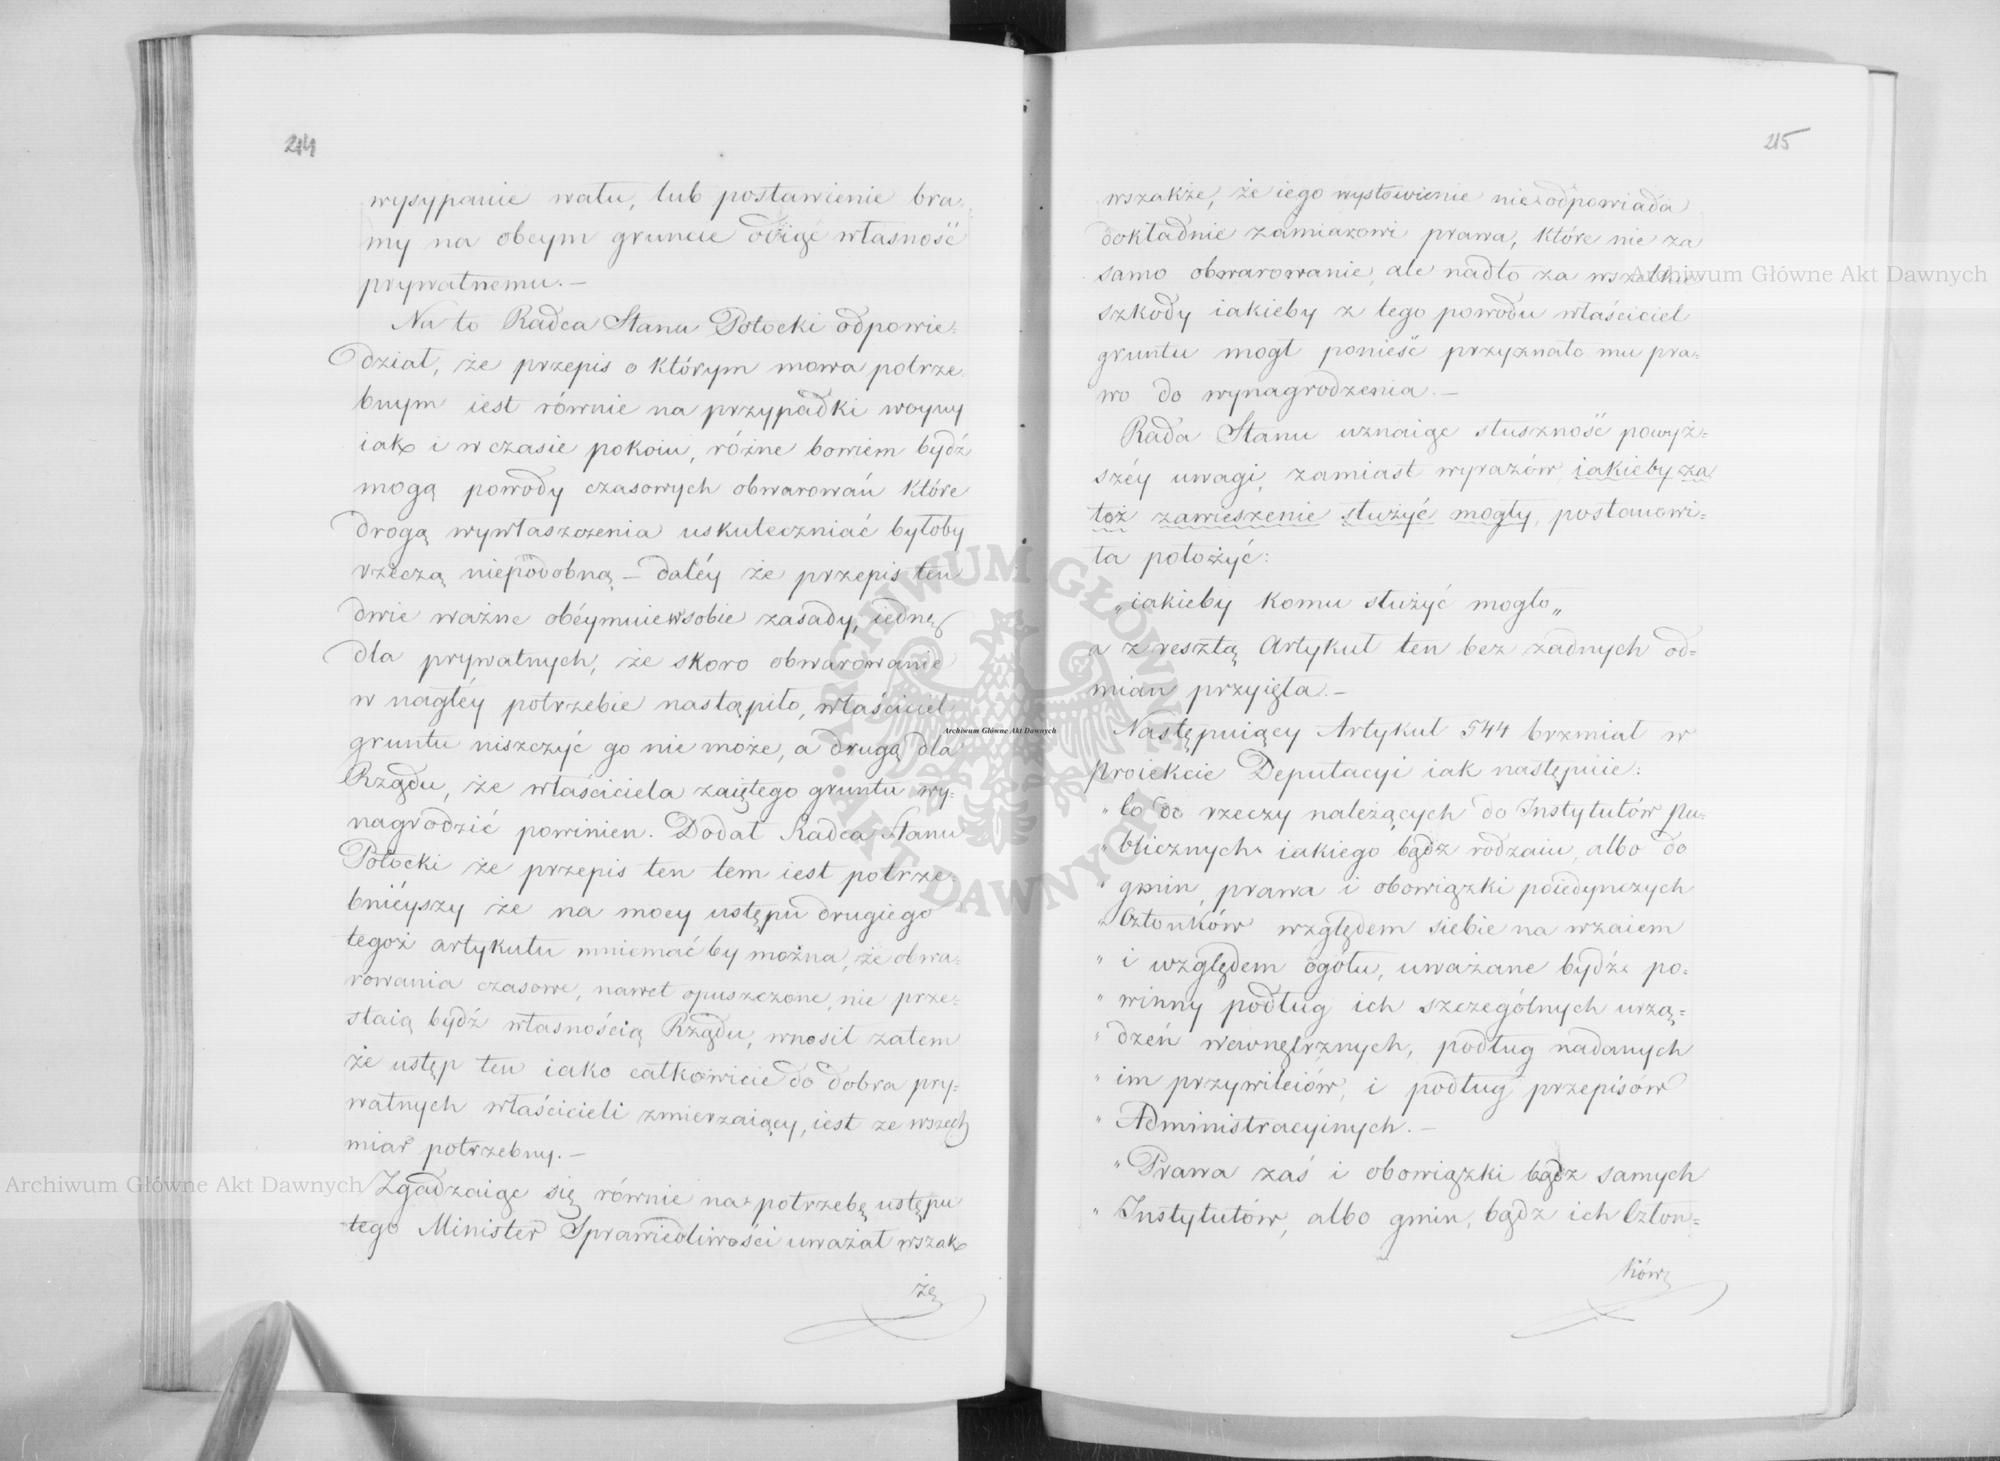 214
wysypanie wału, lub postawienie bra-
my na obcym gruncie odiąć własność
prywatnemu. —
Na to Radca Stanu Potocki odpowie-
dział, że przepis o którym mowa potrze-
bnym iest równie na przypadki woyny
iak i w czasie pokoiu, różne bowiem bydź
mogą powody czasowych obwarowań które
drogą wywłaszczenia uskuteczniać byłoby
rzeczą niepodobną — daléy że przepis ten
dwie ważne obéymuie w sobie zasady, iednę
dla prywatnych, że skoro obwarowanie
w nagłéy potrzebie nastąpiło, właściciel
gruntu niszczyć go nie może, a drugą dla
Rządu, że właściciela zaiętego gruntu wy-
nagrodzić powinien. Dodał Radca Stanu
Potocki że przepis ten tem iest potrze-
bniéyszy że na mocy ustępu drugiego
tegoż artykułu mniemać by można, że obwa-
rowania czasowe, nawet opuszczone, nie prze-
staią bydź własnością Rządu, wnosił zatem
że ustęp ten iako całkowicie do dobra pry-
watnych właścicieli zmierzaiący, iest ze wszech
miar potrzebny. —
Zgadzaiąc się równie na potrzebę ustępu
tego Minister Sprawiedliwości uważał wszak
że
215
wszakże, że iego wysłowienie nie odpowiada
dokładnie zamiarowi prawa, które nie za
samo obwarowanie, ale nadto za wszelkie
szkody iakieby z tego powodu właściciel
gruntu mógł ponieść przyznało mu pra-
wo do wynagrodzenia. —
Rada Stanu uznaiąc słuszność powyż-
széy uwagi, zamiast wyrazów, iakieby za
toż zawieszenie służyć mogły, postanowi-
ła położyć:
„iakieby komu służyć mogło„
a zresztą Artykuł ten bez żadnych od-
mian przyięła. —
Następuiący Artykuł 544 brzmiał w
proiekcie Deputacyi iak następuie:
„Co do rzeczy należących do Instytutów pu-
„blicznych iakiego bądz rodzaiu, albo do
„gmin, prawa i obowiązki poiedynczych
„Członków względem siebie na wzaiem
„i względem ogółu, uważane bydź po-
„winny podług ich szczególnych urzą-
„dzeń wewnętrznych, podług nadanych
„im przywileiów, i podług przepisów
„Administracyinych. —
„Prawa zaś i obowiązki bądz samych
„Instytutów, albo gmin, bądz ich Człon-
ków
Archiwum Główne Akt Dawnych
Archiwum Główne Akt Dawnych
Archiwum Główne Akt Dawnych
ARCHIWUM GŁÓWNE AKT DAWNYCH